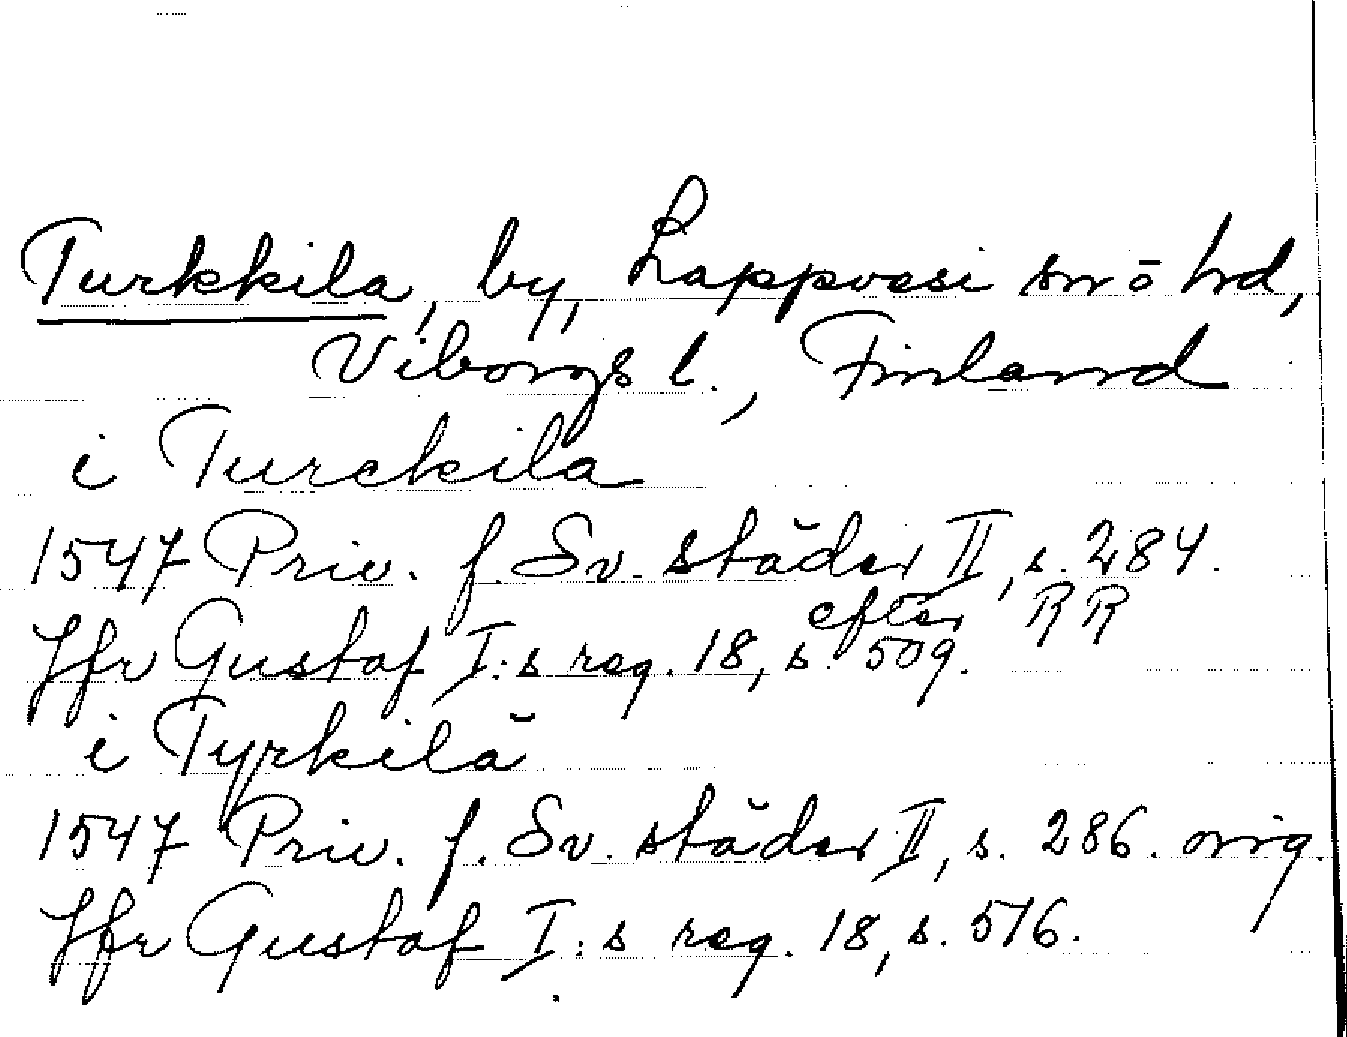 Turkkila, by, Lappvesi sn o hd,
Viborgs l., Finland
i Turckila
1547 Priv. f. Sv. städer II, s. 284.
efter RR
Jfr Gustaf I:s reg. 18, s. 509.
i Tyrkilä
1547 Priv. f. Sv. städer II, s. 286. orig.
Jfr Gustaf I:s reg. 18, s. 516.